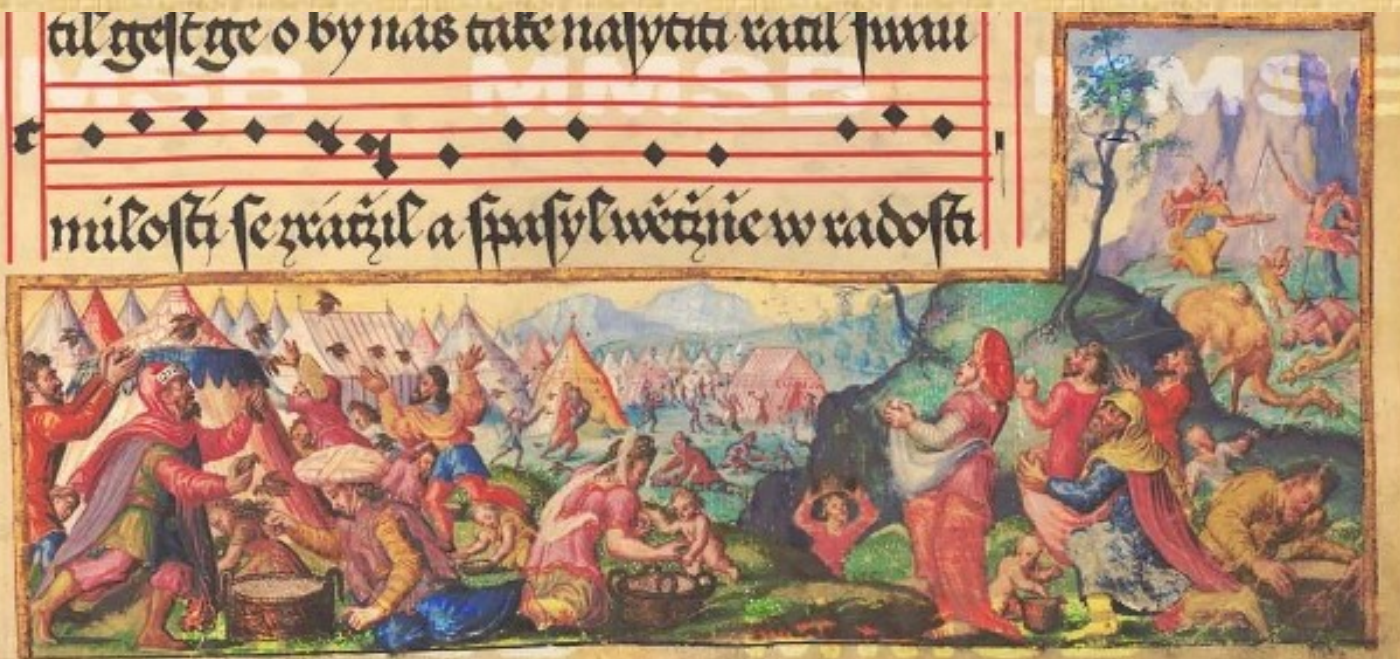 til gest ge o by nás také nasytiti ráčil swau
MSB MMSB MMS
milosti se zráčžil a spasyl wěčžně w radosti